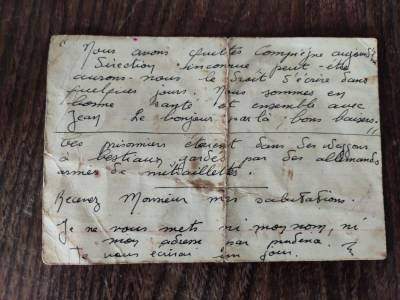 " Nous avons quittés Compiègne aujourd'
Direction inconnue peut-être
aurons-nous le droit d'écrire dans
quelques jours. Nous sommes en
bonne santé et ensemble avec
Jean. Le bonjour par là, bons baisers. "
Ces prisonniers étaient dans des wagons
à bestiaux gardés par des allemands
armés de mitraillettes.
Recevez Monsieur mes salutations.
Je ne vous mets ni mon nom, ni
mon adresse par prudence.
Je vous écrirai un jour.